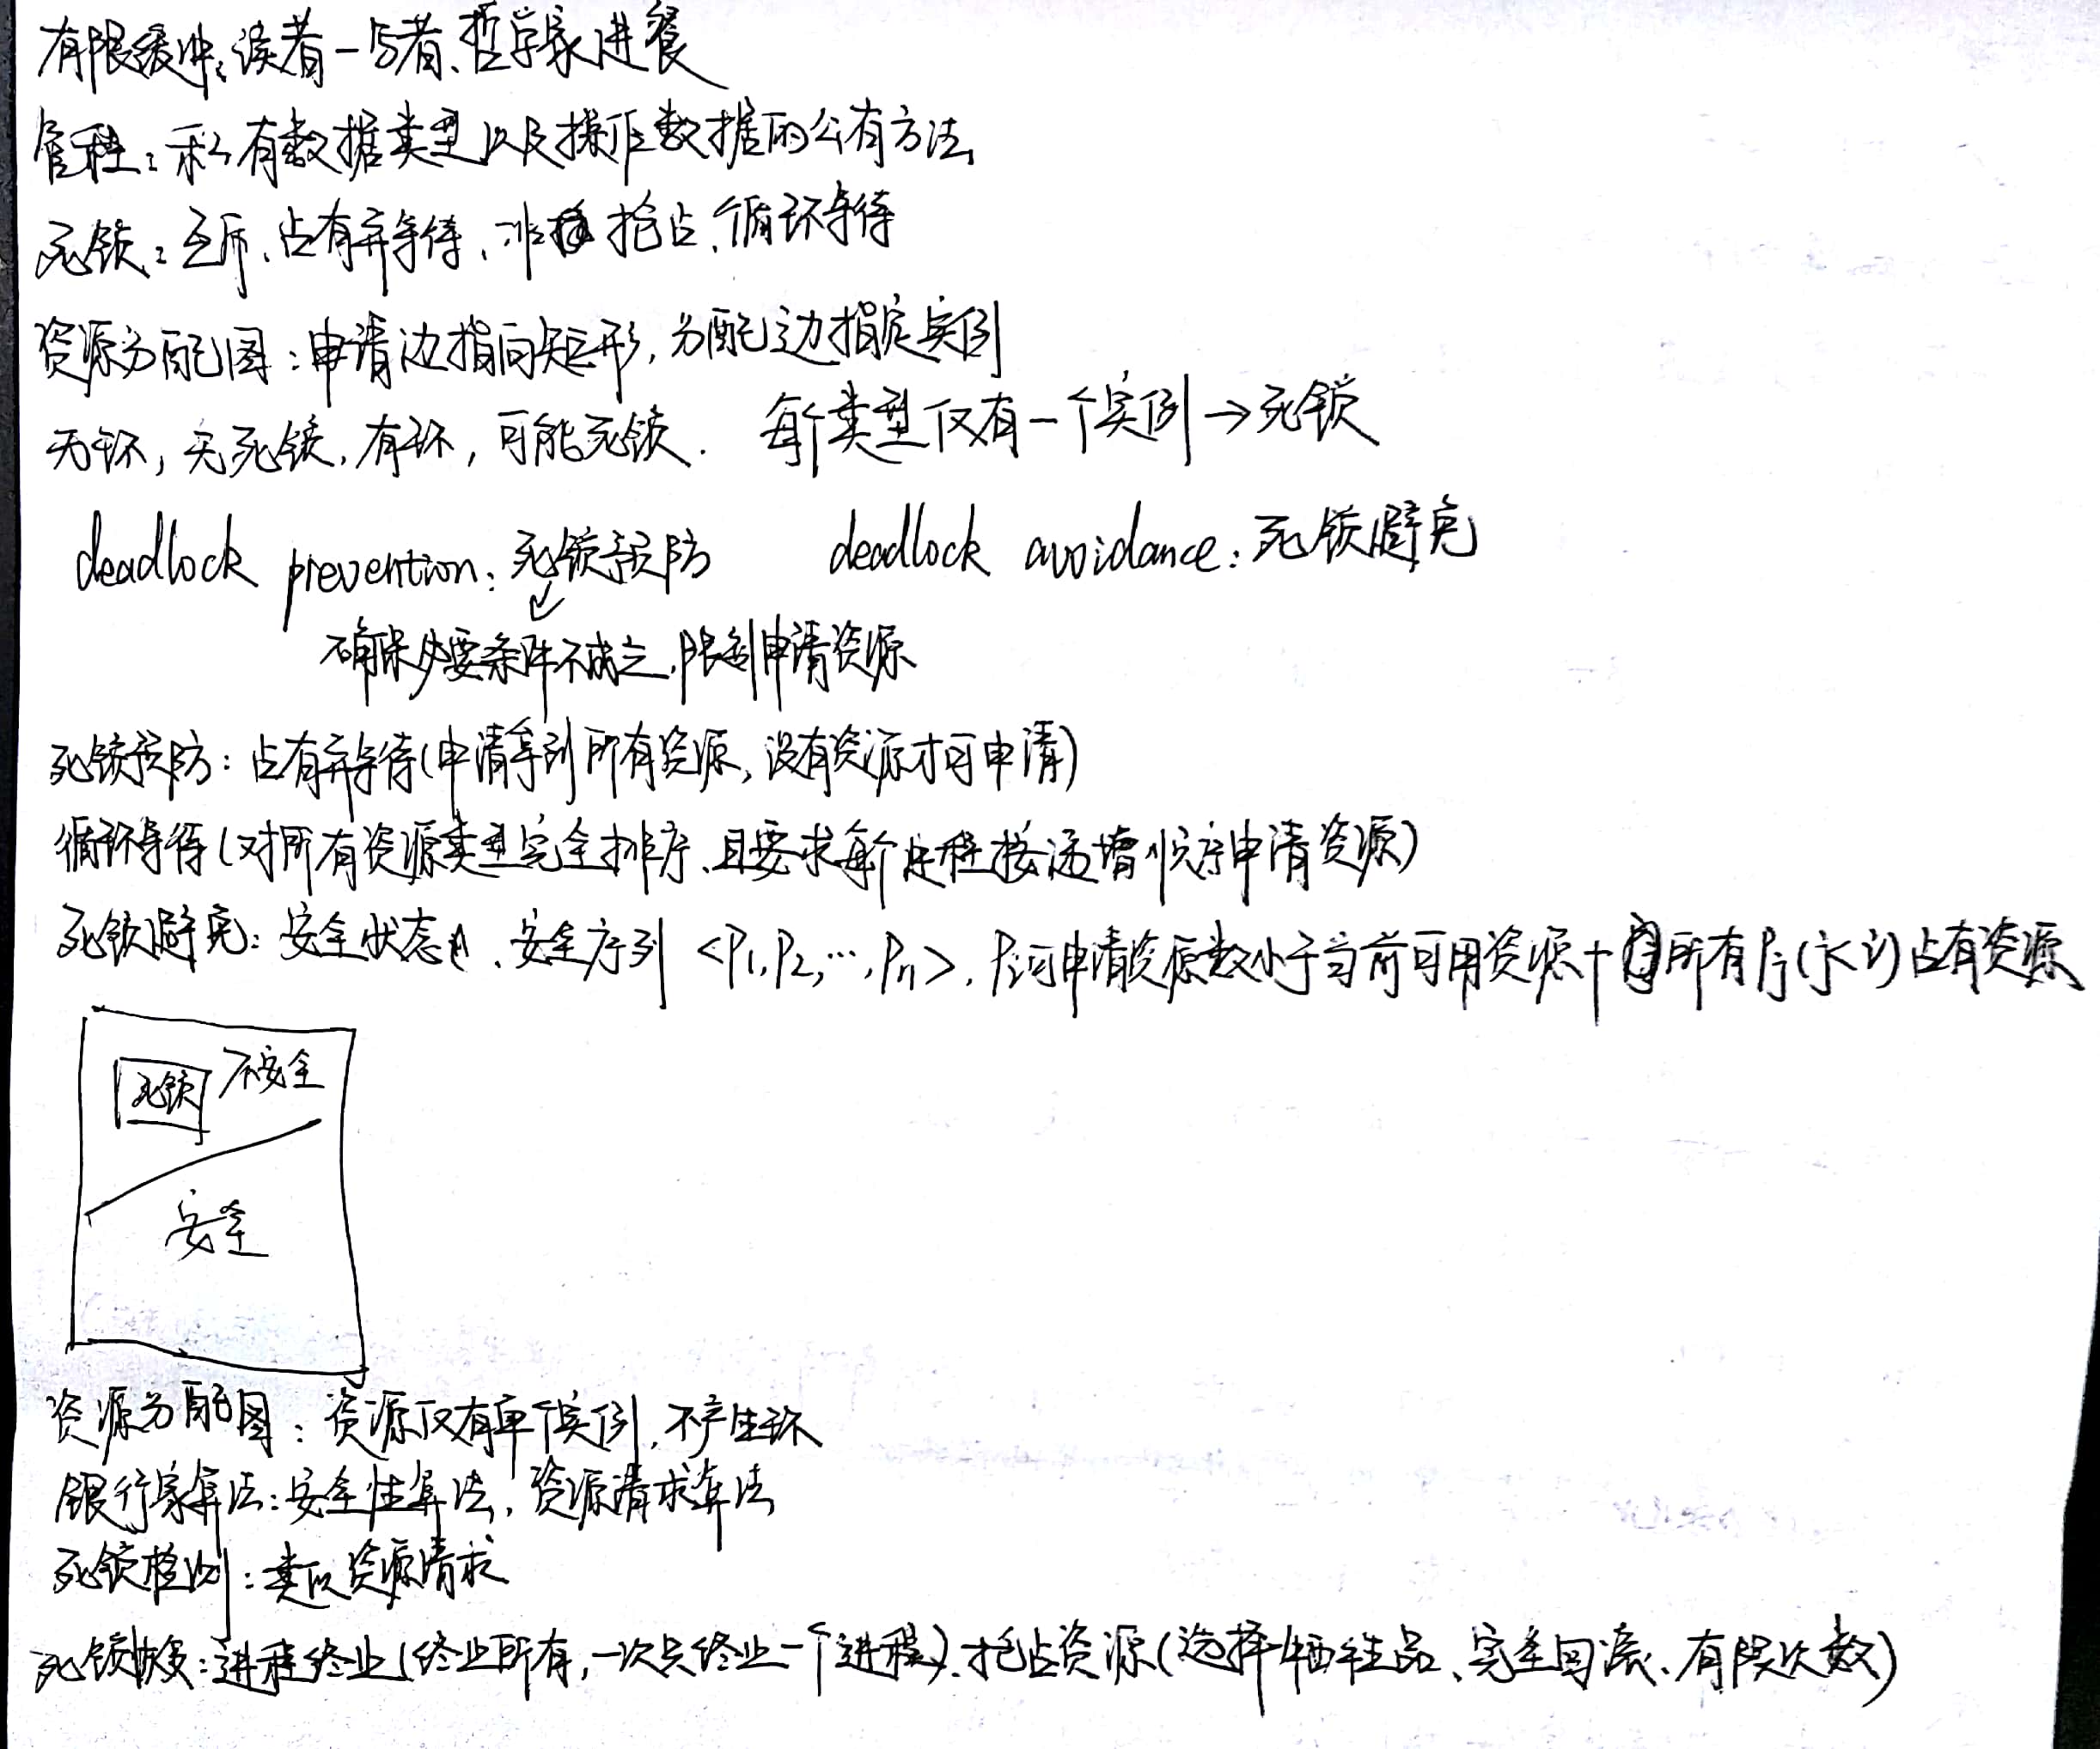 有限缓冲、读者-写者、哲学家进餐
管程：私有数据类型以及操作数据的公有方法
死锁：互斥、占有并等待、非抢占、循环等待
资源分配图：申请边指向矩形，分配边指定实例
无环，无死锁，有环，可能死锁. 每个类型仅有一个实例→死锁
deadlock prevention：死锁预防 deadlock avoidance：死锁避免
确保必要条件不成立，限制申请资源
死锁预防：占有并等待(申请等到所有资源，没有资源才可申请)
循环等待(对所有资源类型完全排序、且要求每个进程按递增顺序申请资源)
死锁避免：安全状态、安全序列 <P1,P2,…,Pn>，Pi可申请资源数小于当前可用资源+所有Pj(j<i)占有资源
死锁 不安全
安全
资源分配图：资源仅有单个实例，不产生环
银行家算法：安全性算法，资源请求算法
死锁检测：类似资源请求
死锁恢复：进程终止(终止所有，一次只终止一个进程)、抢占资源(选择牺牲品、完全回滚、有限次数)